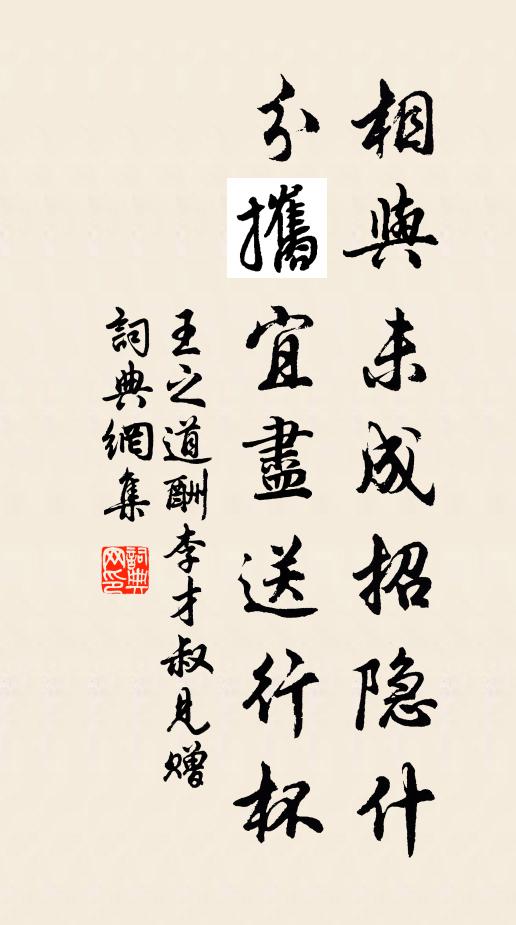 相與未成招隐什
分攜宜盡送行杯
王之道酬李才叔見贈
詞典網集
詞典网印